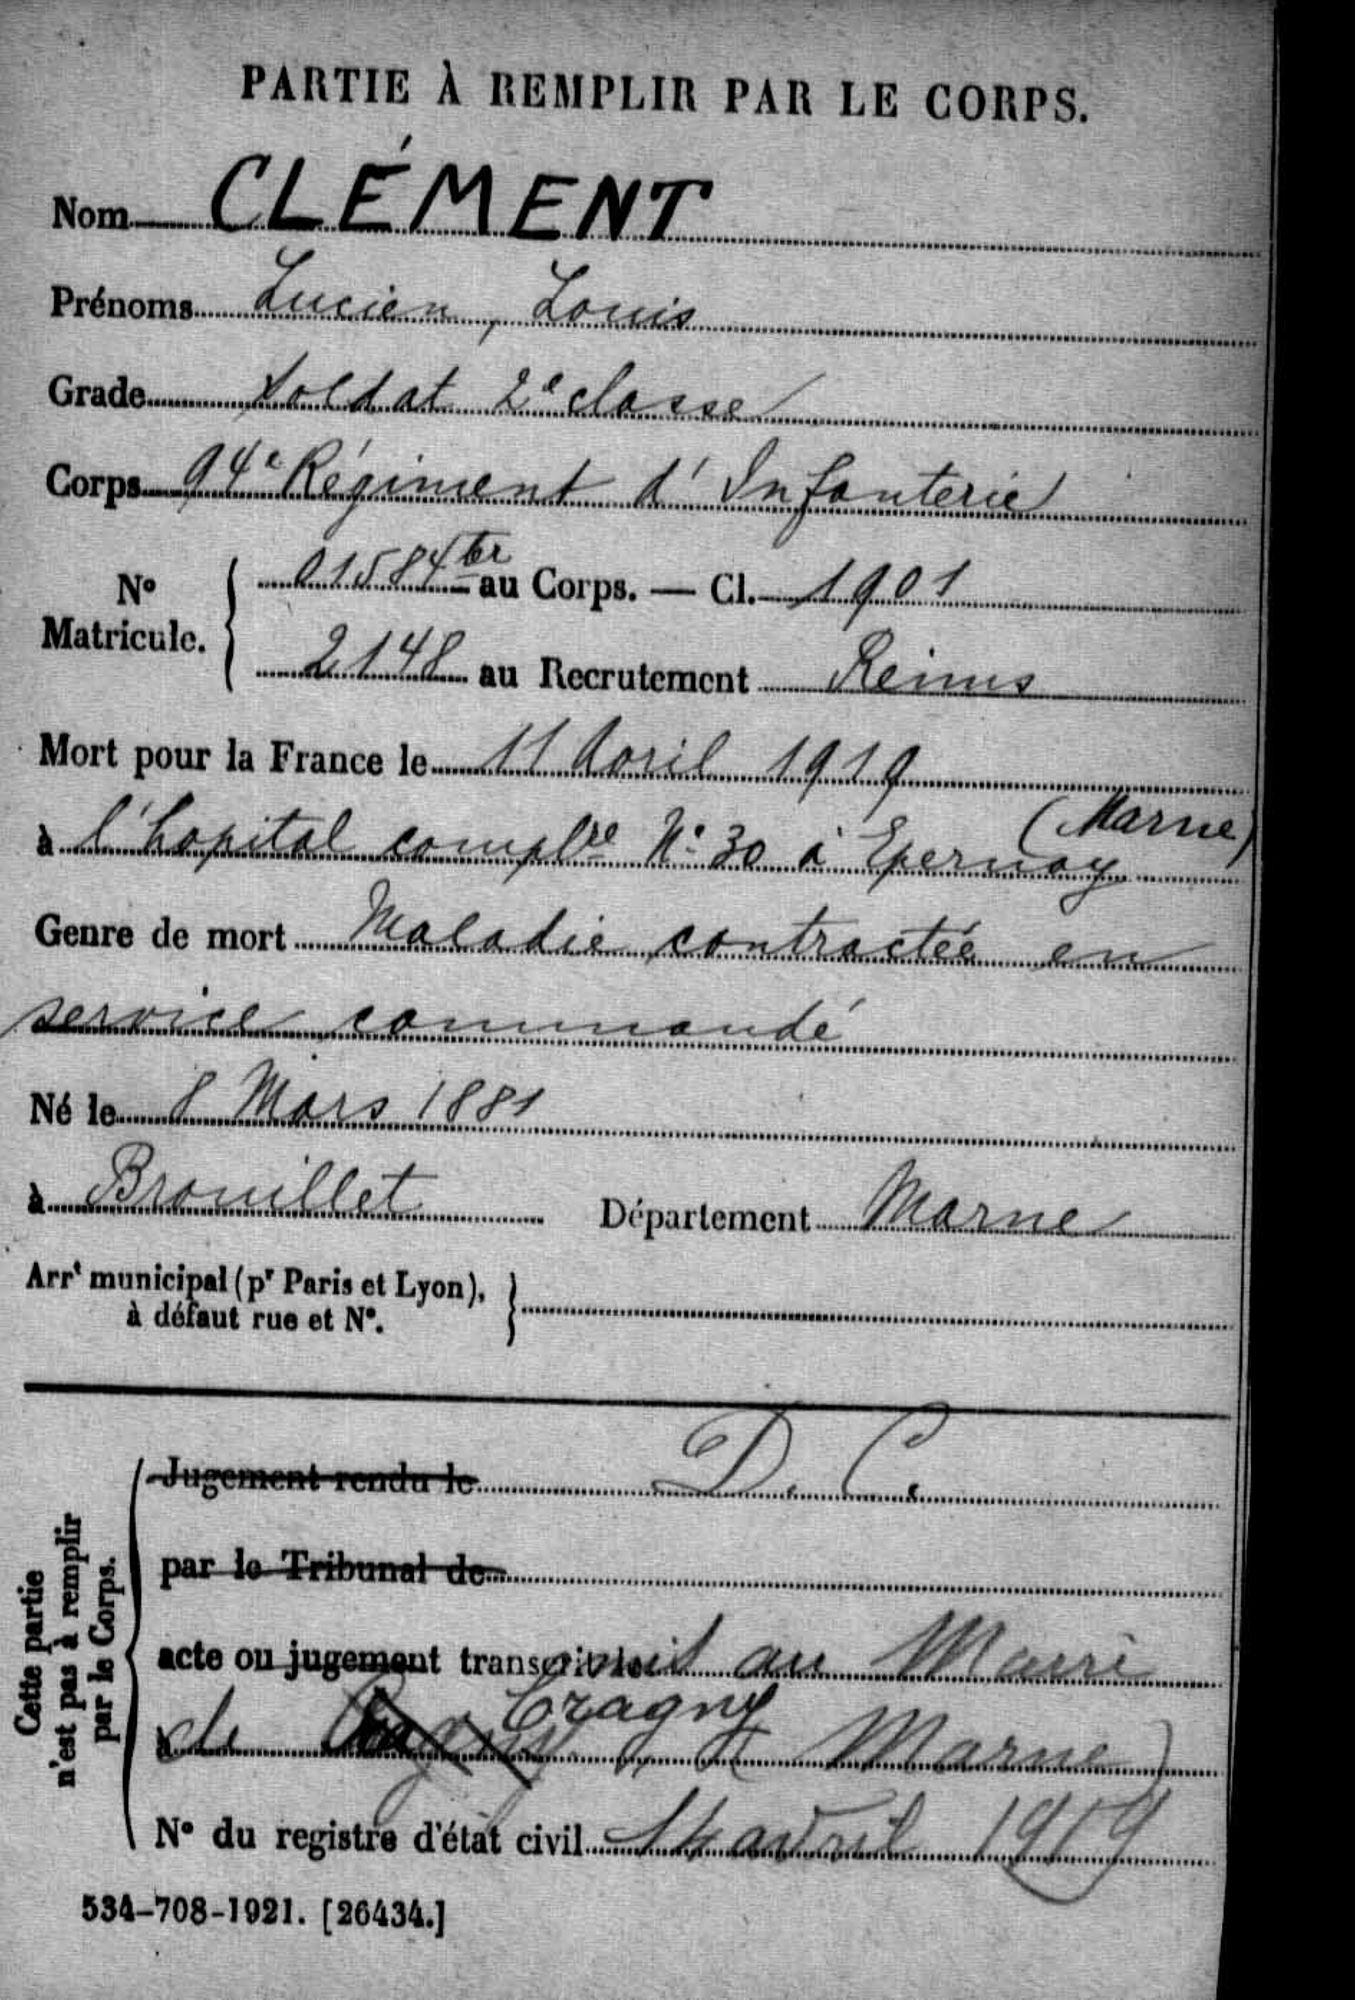 PARTIE À REMPLIR PAR LE CORPS.
Nom CLÉMENT
Prénoms Lucien, Louis
Grade Soldat 2e classe
Corps 94e Régiment d'Infanterie
No Matricule. { 01584 ter au Corps. — Cl. 1901
2148 au Recrutement Reims
Mort pour la France le 11 Avril 1919
à l'hopital complre No 30 à Epernay (Marne)
Genre de mort Maladie contractée en
service commandé
Né le 8 Mars 1881
à Brouillet Département Marne
Arrt municipal (pr Paris et Lyon), à défaut rue et No. }
Cette partie n'est pas à remplir par le Corps.
Jugement rendu le D. C.
par le Tribunal de
acte ou jugement transcrit le au Maire
de Cragny (Marne)
No du registre d'état civil 14 avril 1919
534-708-1921. [26434.]